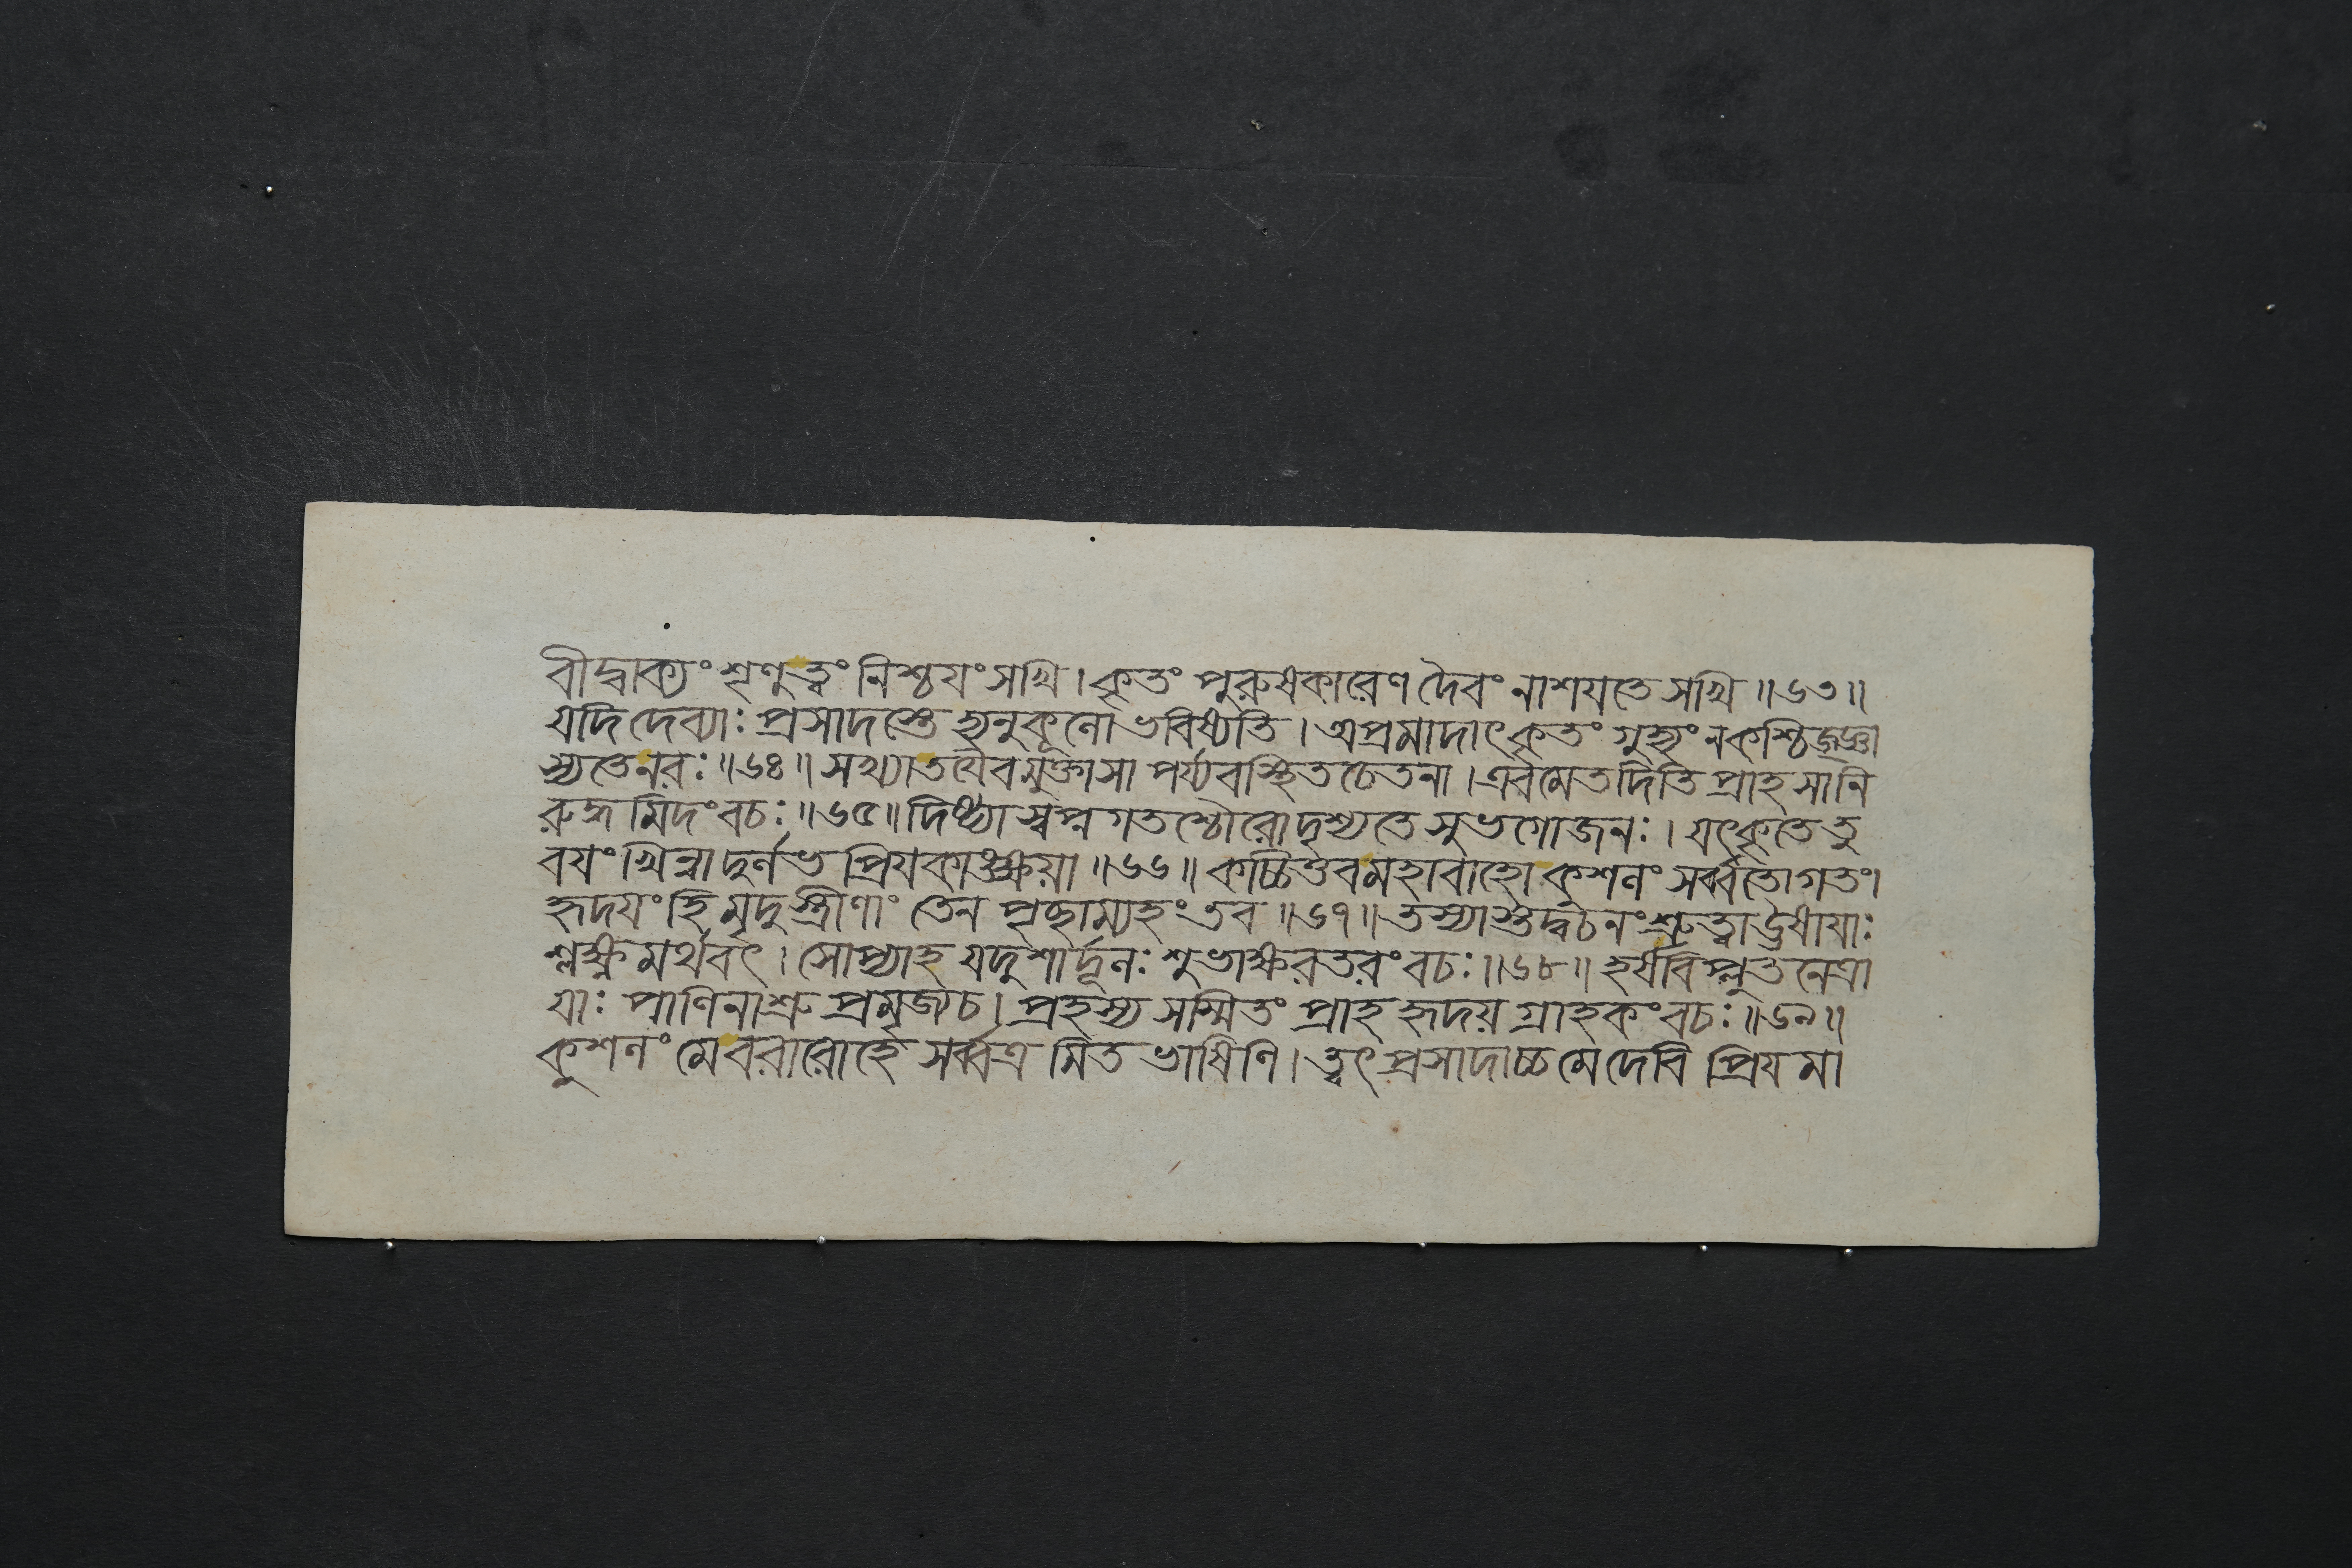 বীদ্বাক্যং শৃণুত্বং নিশ্চয়ং সখি । কৃতং পুরুষকারেণ দৈবং নাশয়তে সখি ॥ ৬৩ ॥
যদি দেব্যাঃ প্রসাদস্তে হ্যনুকূলো ভবিষ্যতি । অপ্রমাদাৎ কৃতং গুহ্যং ন কশ্চিজ্জ্ঞা
স্যতে নরঃ ॥ ৬৪ ॥ সখ্যা তয়ৈবমুক্তা সা পর্য্যবস্থিত চেতনা । এবমেতদিতি প্রাহ সানি
রুদ্ধমিদং বচঃ ॥ ৬৫ ॥ দিষ্ট্যা স্বপ্ন গতশ্চৌরো দৃশ্যতে সুভগো জনঃ । যৎকৃতে তু
বয়ং খিন্না দুর্লভ প্রিয়কাঙ্ক্ষয়া ॥ ৬৬ ॥ কচ্চিত্তব মহাবাহো কুশলং সর্ব্বতোগতং ।
হৃদয়ং হি মৃদু স্ত্রীণাং তেন পৃচ্ছাম্যহং তব ॥ ৬৭ ॥ তস্যাস্তদ্বচনং শ্রুত্বা উষায়াঃ
শ্লক্ষ্ণমর্থবৎ । সোপ্যাহ যদুশার্দ্দূলঃ শুভাক্ষরতরং বচঃ ॥ ৬৮ ॥ হর্ষবিপ্লুত নেত্রা
য়াঃ পাণিনাশ্রু প্রমৃজ্য চ । প্রহস্য সস্মিতং প্রাহ হৃদয় গ্রাহকং বচঃ ॥ ৬৯ ॥
কুশলং মে বরারোহে সর্ব্বত্র মিত ভাষিণি । ত্বৎ প্রসাদাচ্চ মে দেবি প্রিয় মা